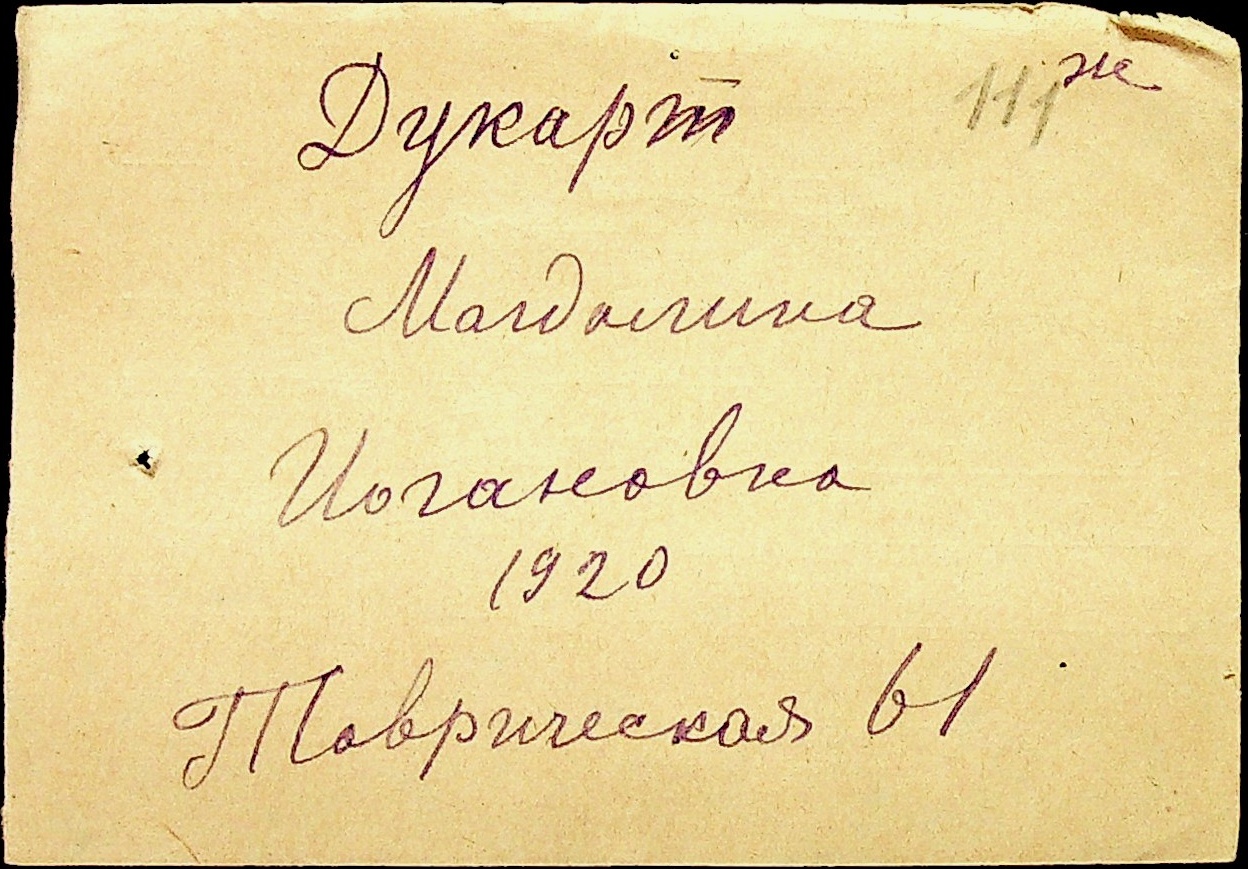 111 ж
Дукарт
Магдалина
Иогановна
1920
Таврическая 61